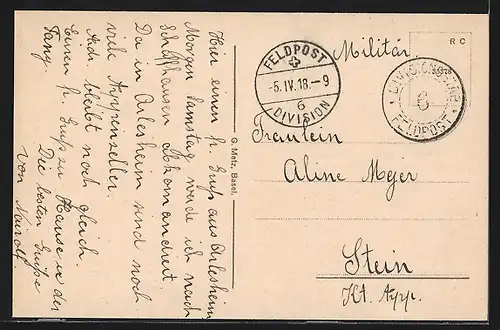 Hier einen fr. Gruß aus Arlesheim
Morgen Samstag werde ich nach
Schaffhausen abkomandiert.
Da in Arlesheim sind noch
viele Appenzeller.
Adr. bleibt noch gleich.
Euren fr. Gruß zu Hause in der
Die besten Grüße
von
G. Metz, Basel.
Militär.
R C
FELDPOST
-5.IV.18.-9
6
DIVISION
6
FELDPOST
Fräulein
Aline Meyer
Stein
Kt. App.